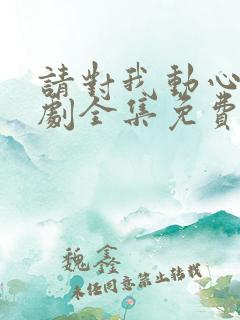 請對我動心
劇全集免費
魏鑫
未经同意禁止转载